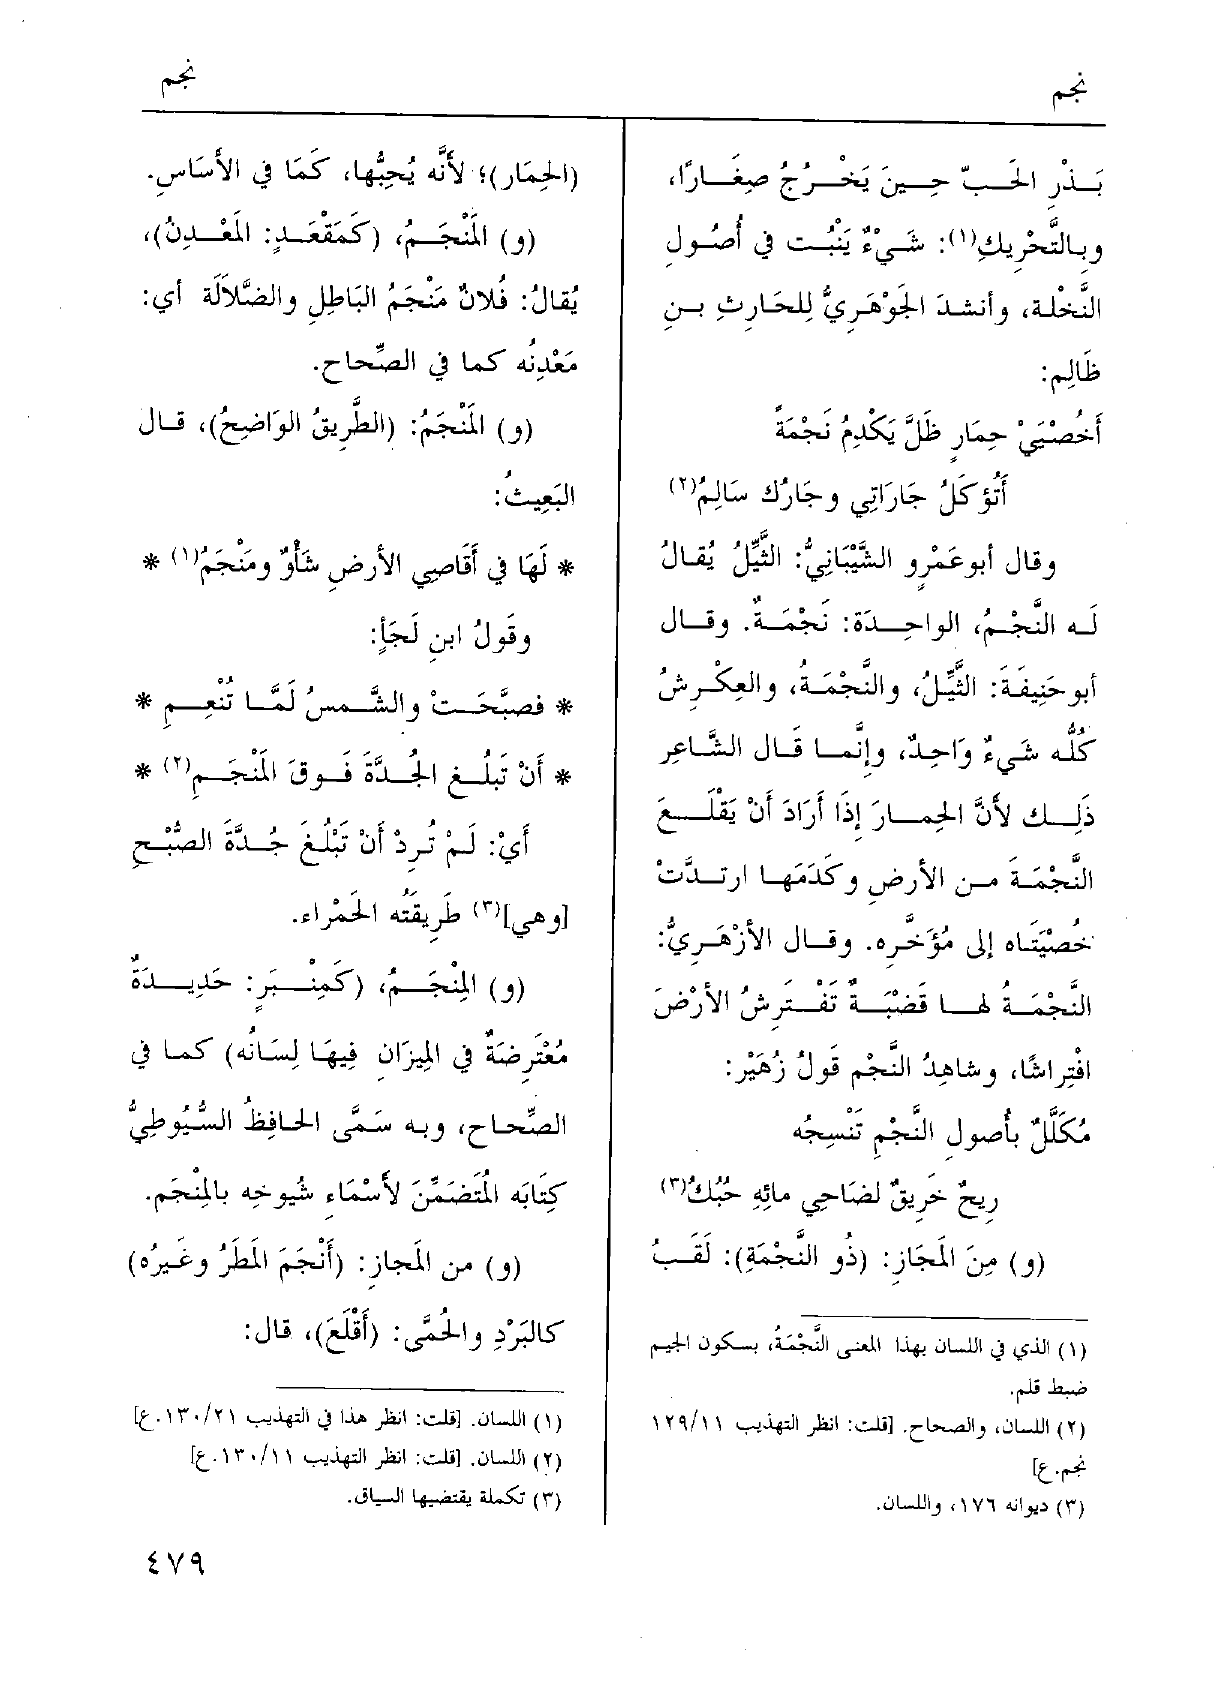 نجم
نجم
بَـذْرِ الحَـبِّ حِـينَ يَخْـرُجُ صِغَـارًا،
وبـالتَّحْرِيكِ(١): شَـيْءٌ يَنْبُـت في أُصُـولِ
النَّخْلة، وأنشدَ الجَوْهَرِيُّ لِلحَارِثِ بـنِ
ظَالِم:
أَخُصْيَيْ حِمَارٍ ظَلَّ يَكْدِمُ نَجْمَةً
أَتُؤكَلُ جَارَاتِي وجَارُك سَالِمُ(٢)
وقال أبوعَمْرٍو الشَّيْبَانِيُّ: الثَّيِّلُ يُقـالُ
لَـه النَّجْمُ، الواحِـدَة: نَجْمَـةٌ. وقـال
أبوحَنِيفَةَ: الثَّيِّلُ، والنَّجْمَـةُ، والعِكْـرِشُ
كُلُّه شَيءٌ وَاحِدٌ، وإنَّمـا قَـال الشَّـاعِر
ذَلِـك لأنَّ الحِمـارَ إذَا أَرَادَ أَنْ يَقْلَـعَ
النَّجْمَـةَ مـن الأرضِ وكَدَمَهـا ارتـدَّتْ
خُصْيَتَـاه إلى مُؤَخَّرِه. وقـال الأزْهَـرِيُّ:
النَّجْمَـةُ لهـا قَضْبَـةٌ تَفْتَـرِشُ الأَرْضَ
افْتِراشًا، وشاهِدُ النَّجْم قَولُ زُهَيْر:
مُكَلَّلٌ بأُصولِ النَّجْمِ تَنْسِجُه
رِيحٌ خَرِيقٌ لضَاحِي مائِهِ حُبُكُ(٣)
(و) مِنَ المَجَازِ: (ذُو النَّجْمَةِ): لَقَـبُ
(١) الذي في اللسان بهذا المعنى النَّجْمَةُ، بسكون الجيم
ضبط قلم.
(٢) اللسان، والصحاح. [قلت: انظر التهذيب ١٢٩/١١
نجم.ع]
(٣) ديوانه ١٧٦، واللسان.
(الحِمَار)؛ لأَنَّه يُحِبُّها، كَمَا في الأَسَاسِ.
(و) المَنْجَـمُ، (كَمَقْعَـدٍ: المَعْـدِنُ)،
يُقَالُ: فُلانٌ مَنْجَمُ البَاطِلِ والضَّلاَلَة أي:
مَعْدِنُه كما في الصِّحاح.
(و) المَنْجَمُ: (الطَّرِيقُ الوَاضِحُ)، قـال
البَعِيثُ:
* لَهَا في أَقَاصِي الأرضِ شَأْوٌ ومَنْجَمُ(١) *
وقَولُ ابنِ لَجَأٍ:
* فصبَّحَـتْ والشَّـمسُ لَمَّـا تُنْعِـمِ *
* أَنْ تَبلُـغِ الجُـدَّةَ فَـوقَ المَنْجَـمِ(٢) *
أَيْ: لَـمْ تُـرِدْ أَنْ تَبْلُغَ جُـدَّةَ الصُّبْـحِ
[وهي](٣) طَرِيقتُه الحَمْراء.
(و) المِنْجَـمُ، (كَمِنْـبَرٍ: حَدِيـدَةٌ
مُعْتَرِضَةٌ في المِيزَانِ فِيهَا لِسَانُه) كمـا في
الصِّحـاح، وبـه سَـمَّى الحـافِظُ السُّيُوطِيُّ
كِتَابَه المُتَضَمِّنَ لأَسْمَاءِ شُيوخِه بالمِنْجَم.
(و) من المَجازِ: (أَنْجَمَ المَطَرُ وغَيرُه)
كـالبَرْدِ والحُمَّى: (أَقْلَعَ)، قال:
(١) اللسان. [قلت: انظر هذا في التهذيب ١٣٠/٢١.ع]
(٢) اللسان. [قلت: انظر التهذيب ١٣٠/١١.ع]
(٣) تكملة يقتضيها السياق.
٤٧٩